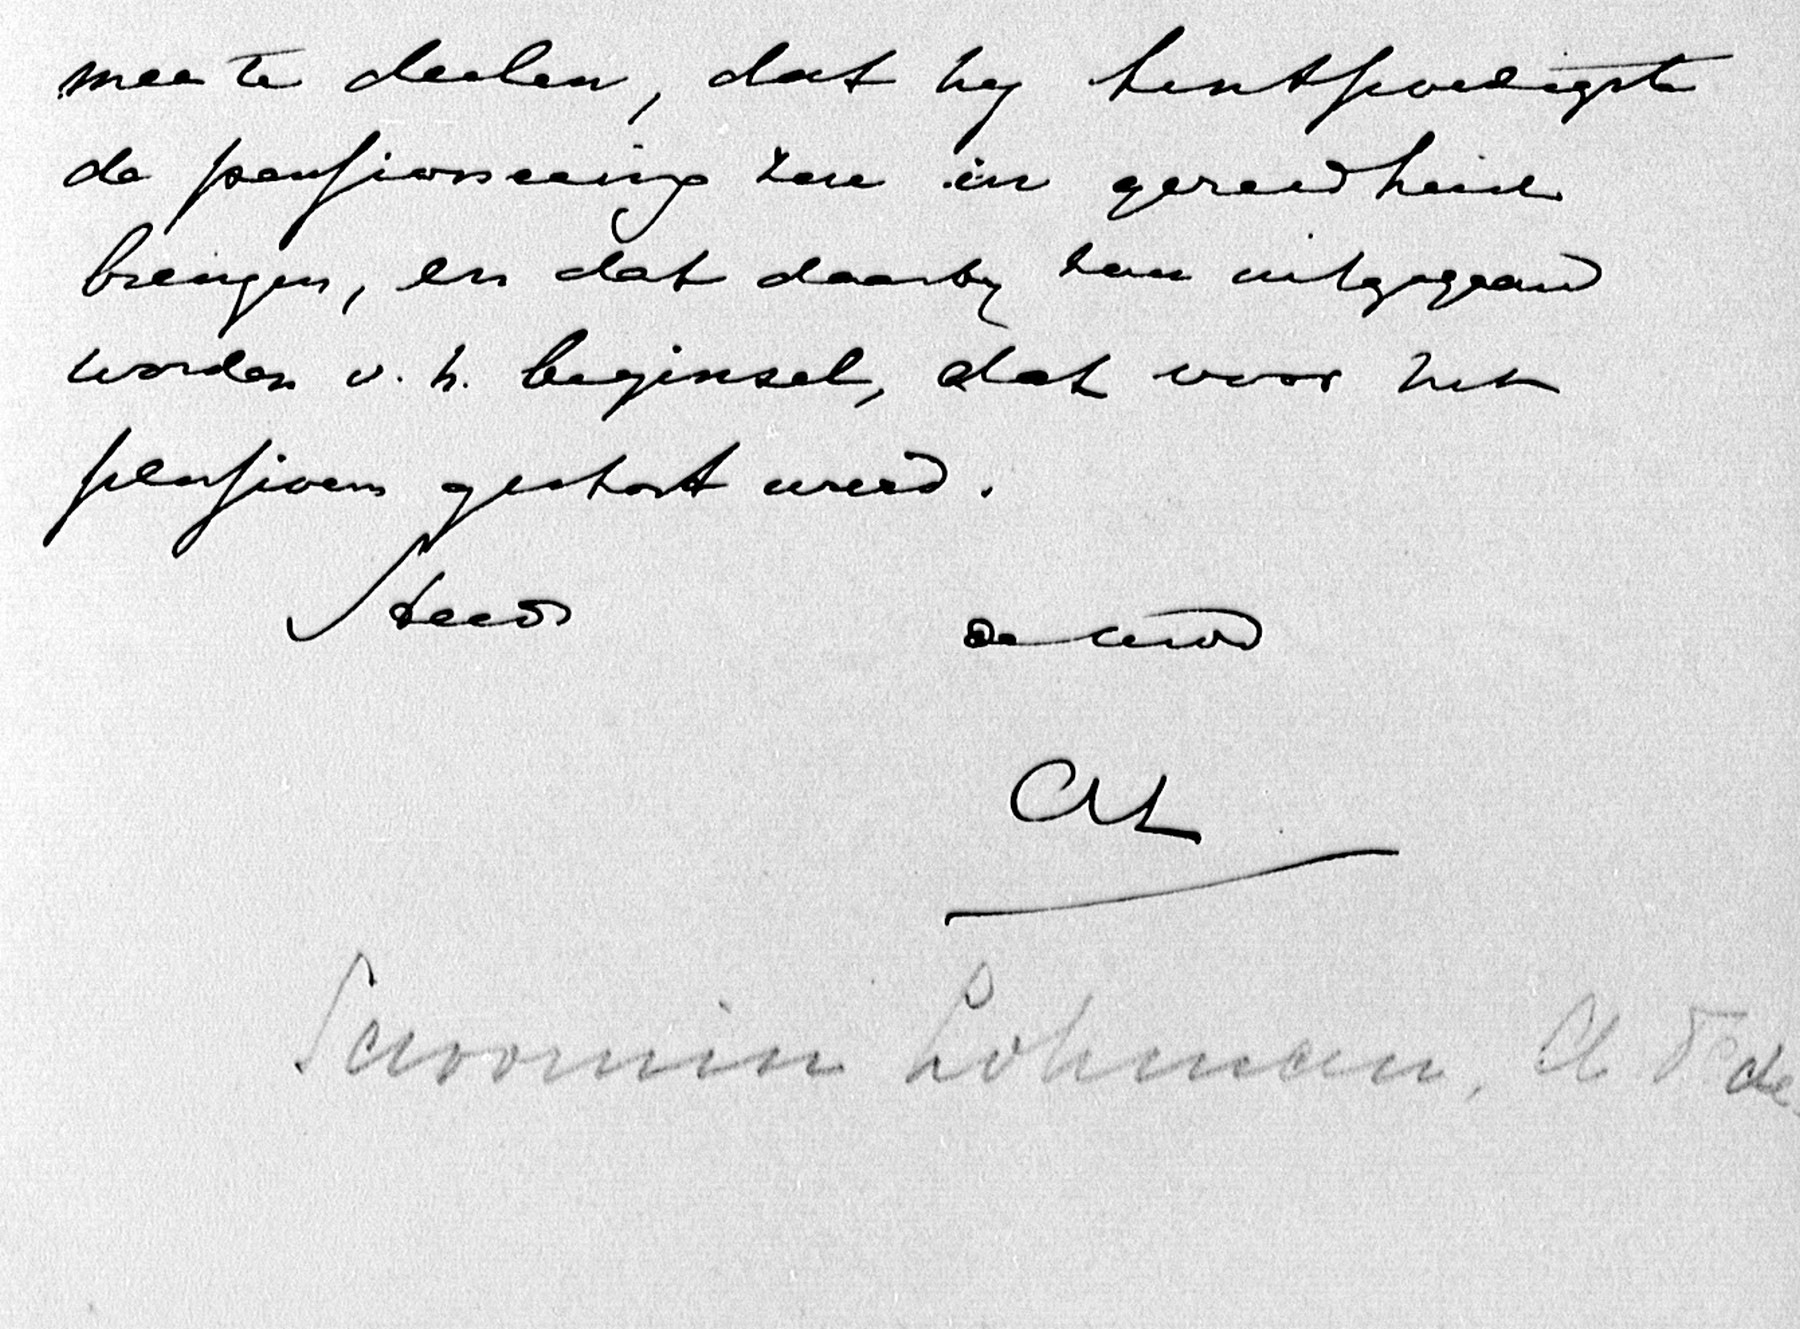 mee te deelen, dat hij tenspoedigste
de pensioneering zou in gereedheid
brengen, en dat daarbij zou uitgegaan
worden v. h. beginsel, dat voor het
pensioen gestort werd.
Steeds de Uwe
AL
Savornin Lohman, A F de